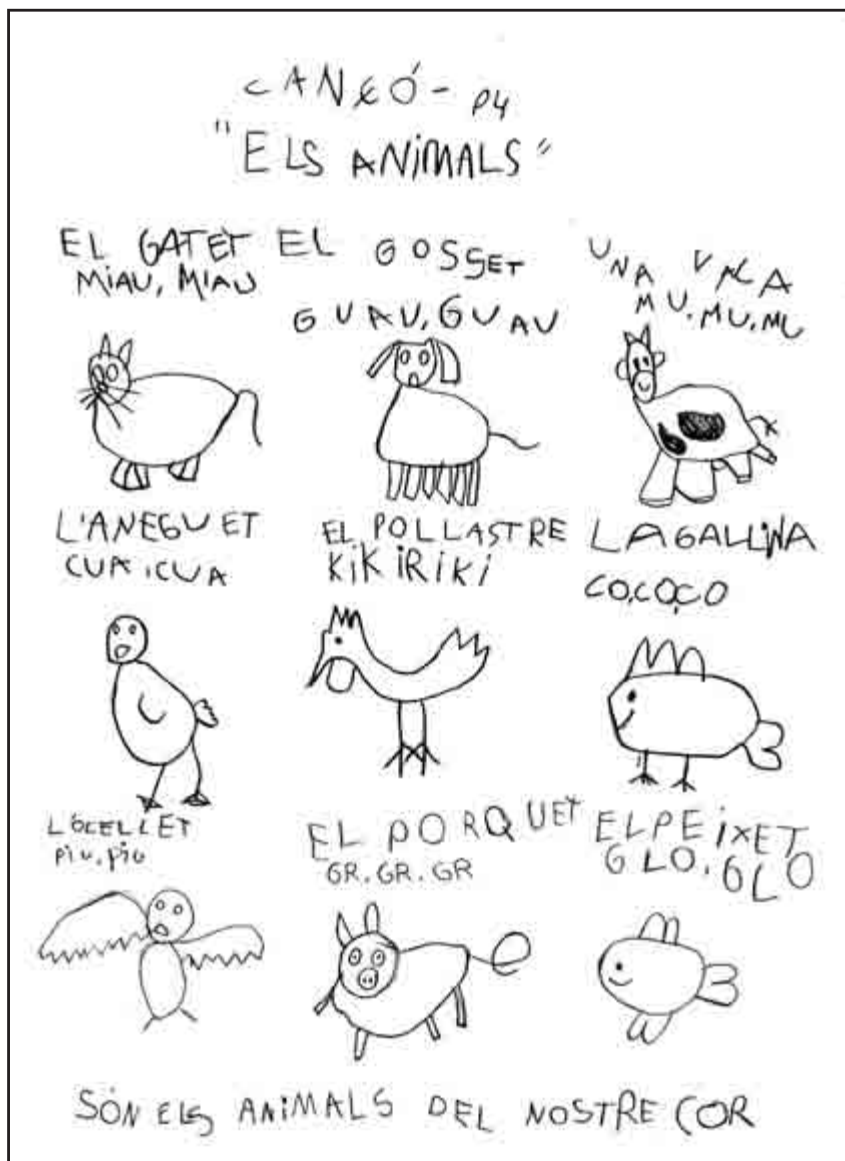 CANÇÓ - P4
"ELS ANIMALS"
EL GATET
MIAU, MIAU
EL GOSSET
GUAU, GUAU
UNA VACA
MU, MU, MU
L'ANEGUET
CUA, CUA
EL POLLASTRE
KIKIRIKI
LA GALLINA
CO, CO, CO
L'OCELLET
piu, piu
EL PORQUET
GR. GR. GR
EL PEIXET
GLO, GLO
SÓN ELS ANIMALS DEL NOSTRE COR